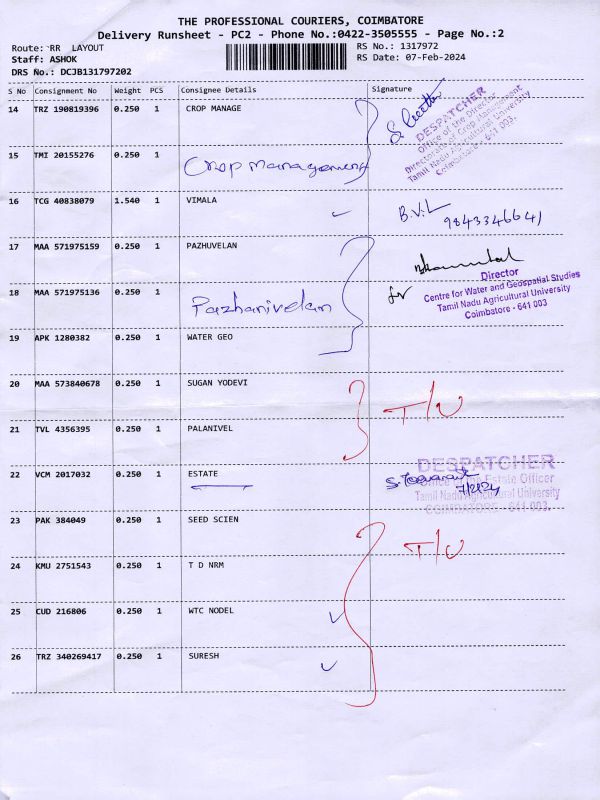 THE PROFESSIONAL COURIERS, COIMBATORE
Delivery Runsheet - PC2 - Phone No.:0422-3505555 - Page No.:2
Route: RR LAYOUT
RS No.: 1317972
Staff: ASHOK
RS Date: 07-Feb-2024
DRS No.: DCJB131797202
S No Consignment No Weight PCS Consignee Details Signature
14 TRZ 190819396 0.250 1 CROP MANAGE
DESPATCHER
Office of the Director
Directorate of Crop Management
Tamil Nadu Agricultural University
Coimbatore - 641 003.
15 TMI 20155276 0.250 1
Crop management
16 TCG 40838079 1.540 1 VIMALA
B.V.L
9843346641
17 MAA 571975159 0.250 1 PAZHUVELAN
Director
for Centre for Water and Geospatial Studies
Tamil Nadu Agricultural University
Coimbatore - 641 003
18 MAA 571975136 0.250 1
Pazhanivelan
19 APK 1280382 0.250 1 WATER GEO
20 MAA 573840678 0.250 1 SUGAN YODEVI
T/U
21 TVL 4356395 0.250 1 PALANIVEL
22 VCM 2017032 0.250 1 ESTATE
DESPATCHER
Office of the Estate Officer
7/2/24
Tamil Nadu Agricultural University
COIMBATORE - 641 003.
23 PAK 384049 0.250 1 SEED SCIEN
T/U
24 KMU 2751543 0.250 1 T D NRM
25 CUD 216806 0.250 1 WTC NODEL
26 TRZ 340269417 0.250 1 SURESH